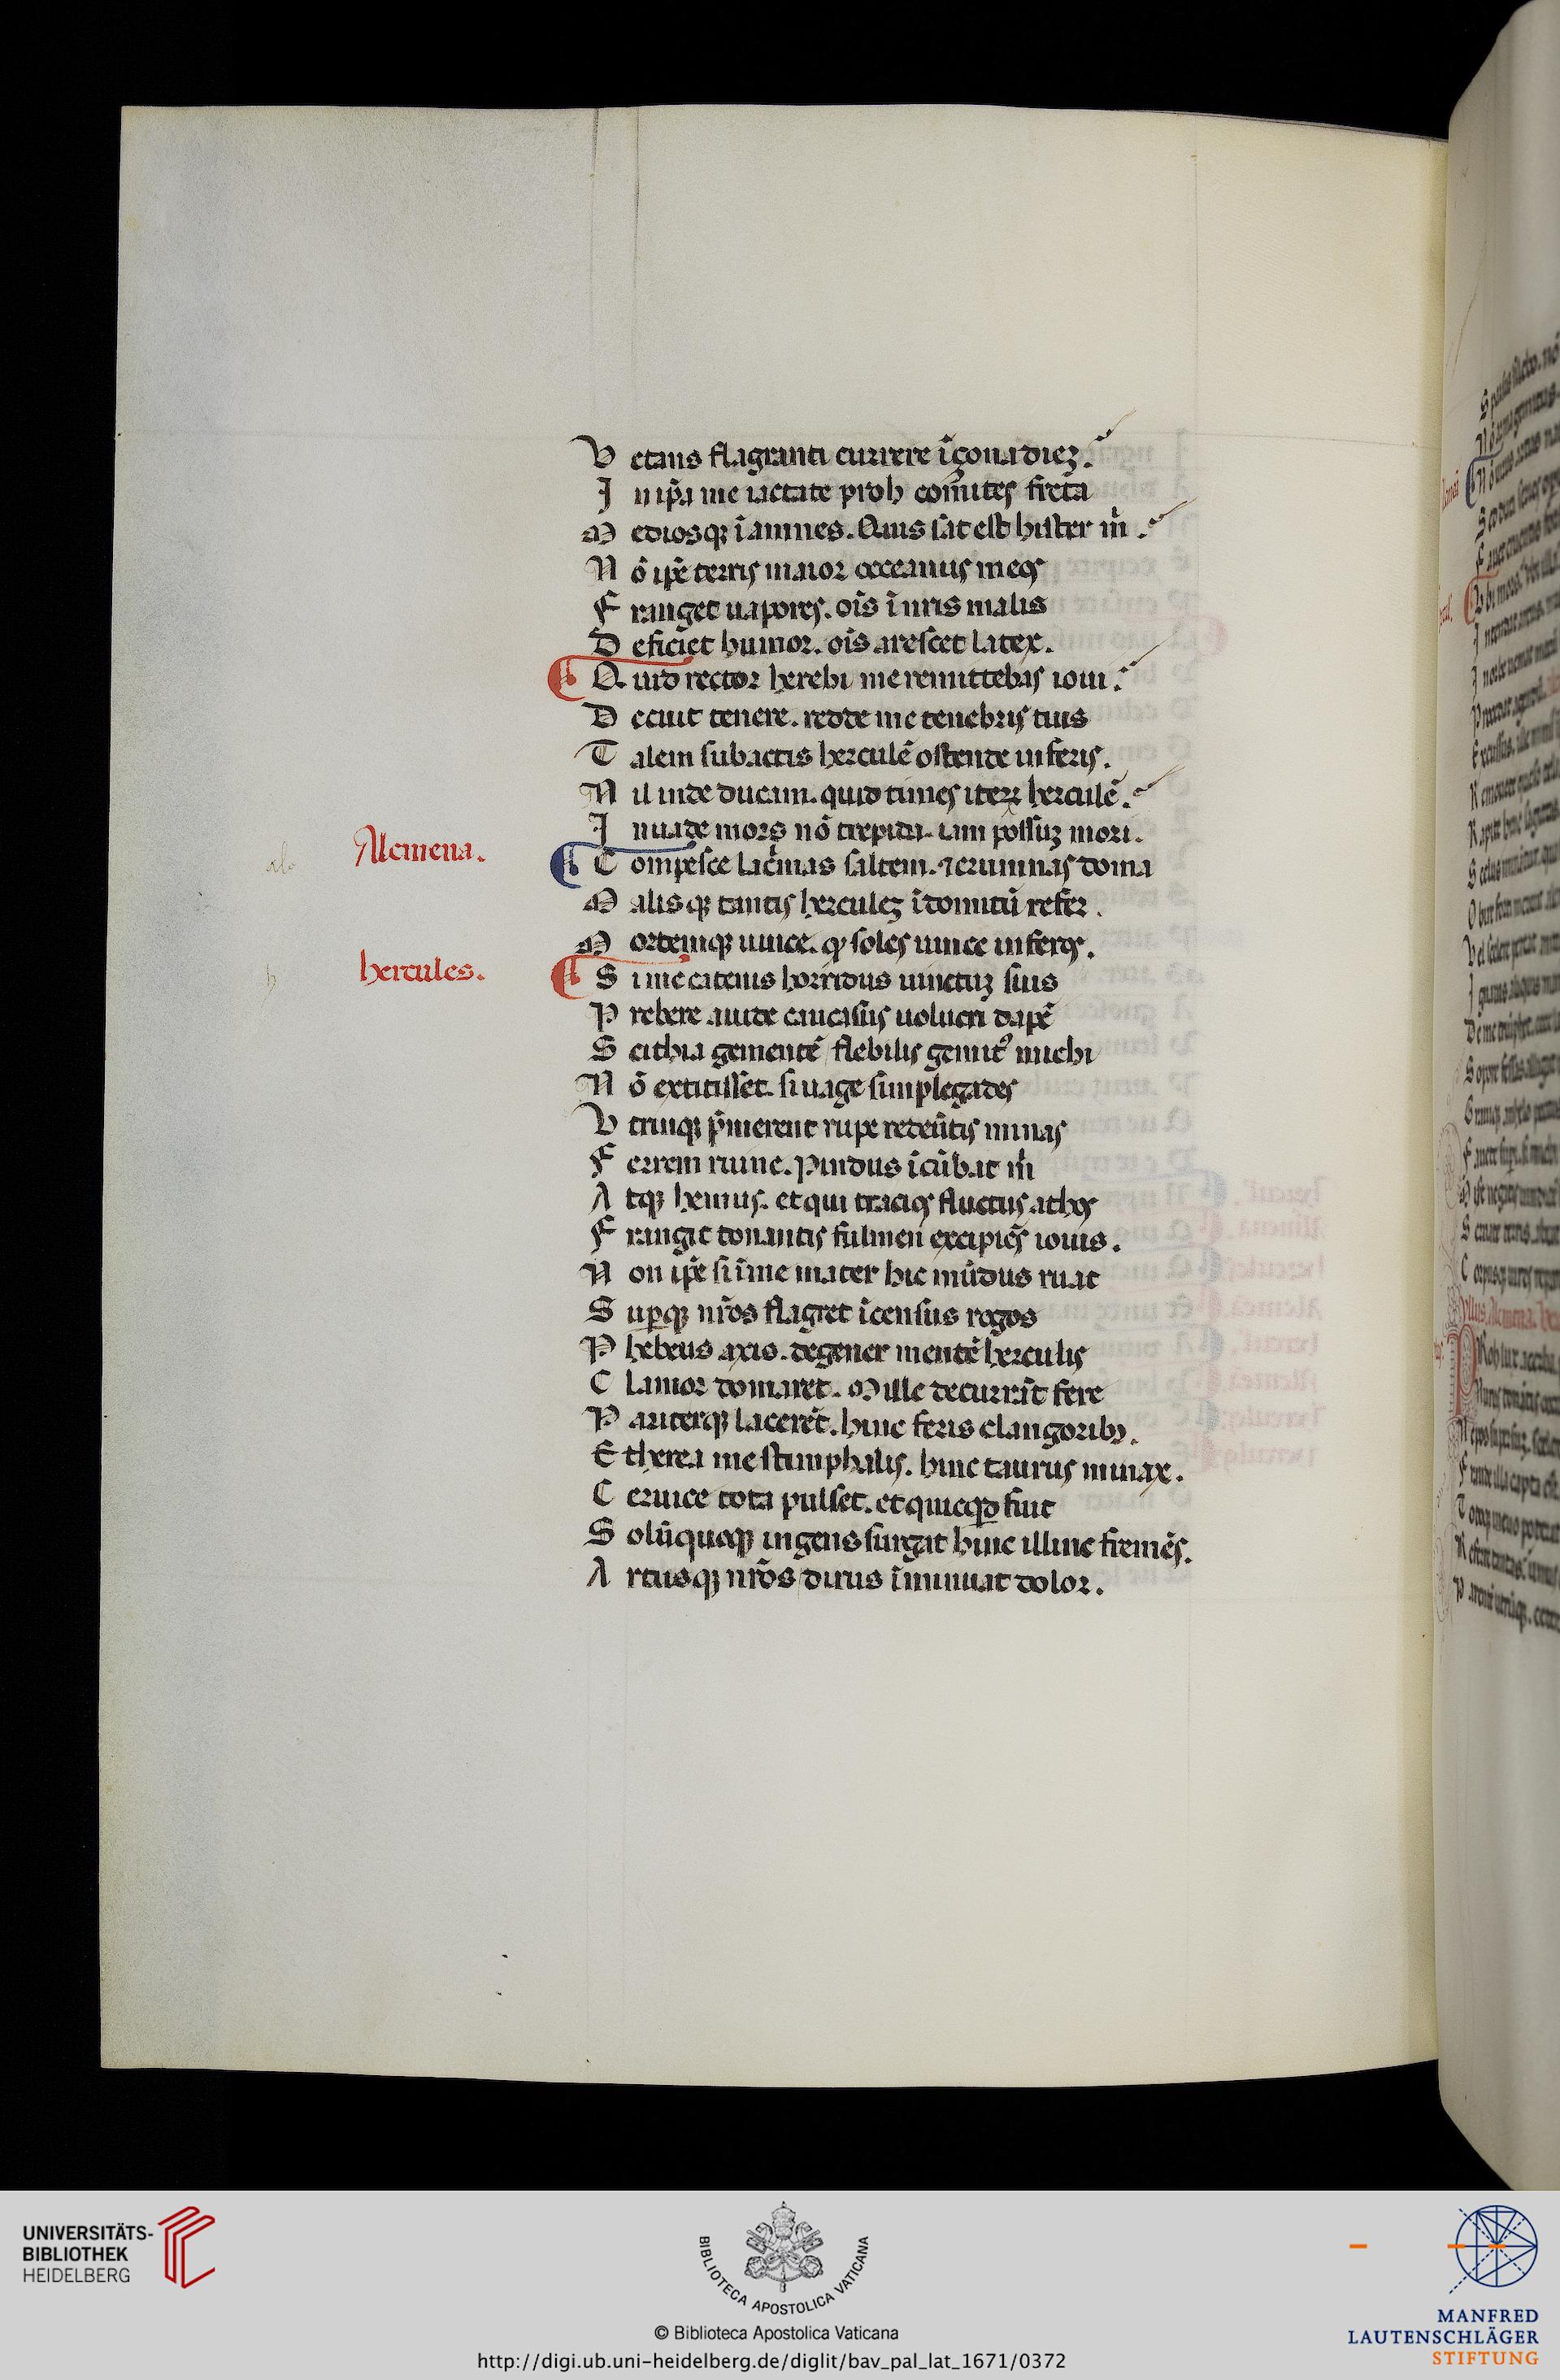 V etans flagranti currere ī çona diez.
I n ip̄a me iactate proh com̄ites freta
M edios qꝫ ī amnes. Quis sat est hister m̄.
N ō ip̄e terris maior occeanus meos
F ranget uapores. oīs ī nr̄is malis
D eficiet humor. oīs arescet latex.
Q uid rector herebi me remittebas ioui.
D ecuit tenere. redde me tenebris tuis
T alem subactis herculē ostende inferis.
N il inde ducam. quid times iteꝝ herculē.
I nuade mors nō trepida. iam possuꝫ mori.
Alcmena.
C ompesce lac̄mas saltem. ⁊ erumnas doma
M alis qꝫ tantis herculeꝫ īdomitū refer.
M ortemqꝫ uince. qͦ soles uince inferos.
hercules.
S i me catenis horridus uinctuꝫ suis
P rebere auide caucasus uolucri dapē
S cithia gementē flebilis gemitꝰ michi
N ō extitisset. si uage simplegades
V trinqꝫ p̄merent rupe redeūtis minas
F errem ruine. Pindus īcūbat m̄
A tqꝫ hemus. et qui tracios fluctus athos
F rangit tonantis fulmen excipiēs iouis.
N on ip̄e si ī me mater hic mūdus ruat
S uꝑqꝫ nr̄os flagret īcensus rogos
P hebeus axis. degener mentē herculis
C lamor domaret. Mille decurrāt fere
P ariterqꝫ lacerēt. hinc feris clangoribꝫ.
E therea me stimphalis. hinc taurus minax.
C eruice tota pulset. et quicqd̄ fuit
S olū quoqꝫ ingens surgat hinc illinc fremēs.
A rtusqꝫ nr̄os dirus īminuat dolor.
UNIVERSITÄTS-
BIBLIOTHEK
HEIDELBERG
BIBLIOTECA APOSTOLICA VATICANA
© Biblioteca Apostolica Vaticana
http://digi.ub.uni-heidelberg.de/diglit/bav_pal_lat_1671/0372
MANFRED
LAUTENSCHLÄGER
STIFTUNG